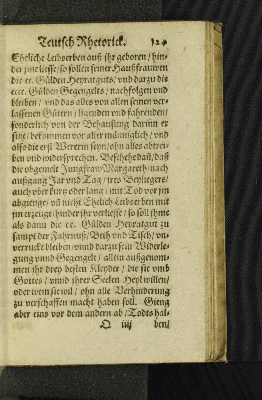 Teutsch Rhetorick. 124
Eheliche Leiberben auß jhr geboren / hin-
der jme liesse / so sollen seiner Haußfrauwen
die cc. Gülden Heyratguts / vnd darzu die
cccc. Gülden Gegengelts / nachfolgen vnd
bleiben / vnd das alles von allen seinen ver-
lassenen Gütern / ligenden vnd fahrenden /
sonderlich von der Behausung darinn er
sitzt / bekommen vor aller mäniglich / vnd
also die erst Wererin seyn / ohn alles abtrei-
ben vnd widersprechen. Beschehe dañ / daß
die obgemelt Jungfraw Margareth / nach
außgang Jar vnd Tag / jres Beyligers /
auch vber kurtz oder lang / mit Tod vor jm
abgienge / vñ nicht Ehelich Leiberben mit
jm erzeugt / hinder jhr verliesse / so soll jhme
als dann die cc. Gülden Heyratgut zu
sampt der Fahrnuß / Beth vnd Tisch / vn-
verruckt bleiben / vnnd darzu sein Widerle-
gung vnnd Gegengelt / allein außgenom-
men jhr drey besten Kleyder / die sie vmb
Gottes / vnnd jhrer Seelen Heyl willen /
oder wem sie wil / ohn alle Verhinderung
zu verschaffen macht haben soll. Gieng
aber eins vor dem andern ab / Todts hal-
Q iiij ben /